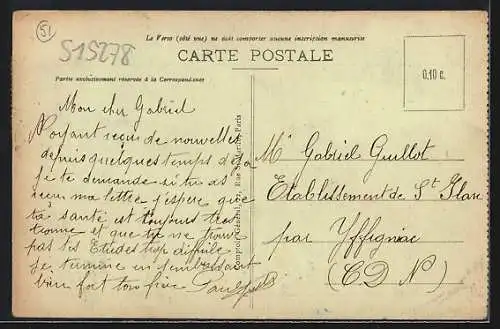 51
515278
Le Verso (côté vue) ne doit comporter aucune inscription manuscrite
CARTE POSTALE
Partie exclusivement réservée à la Correspondance
0.10 c.
Mon cher Gabriel
N'ayant reçu de nouvelles
depuis quelques temps de toi
je te demande si tu as
reçu ma lettre j'espère que
ta santé est toujours
et que tu ne trouve
pas les Etudes trop difficile
Je termine en
bien fort ton frère
Mr Gabriel Guillot
Etablissement de St Ilan
par Yffigniac
(C D N)